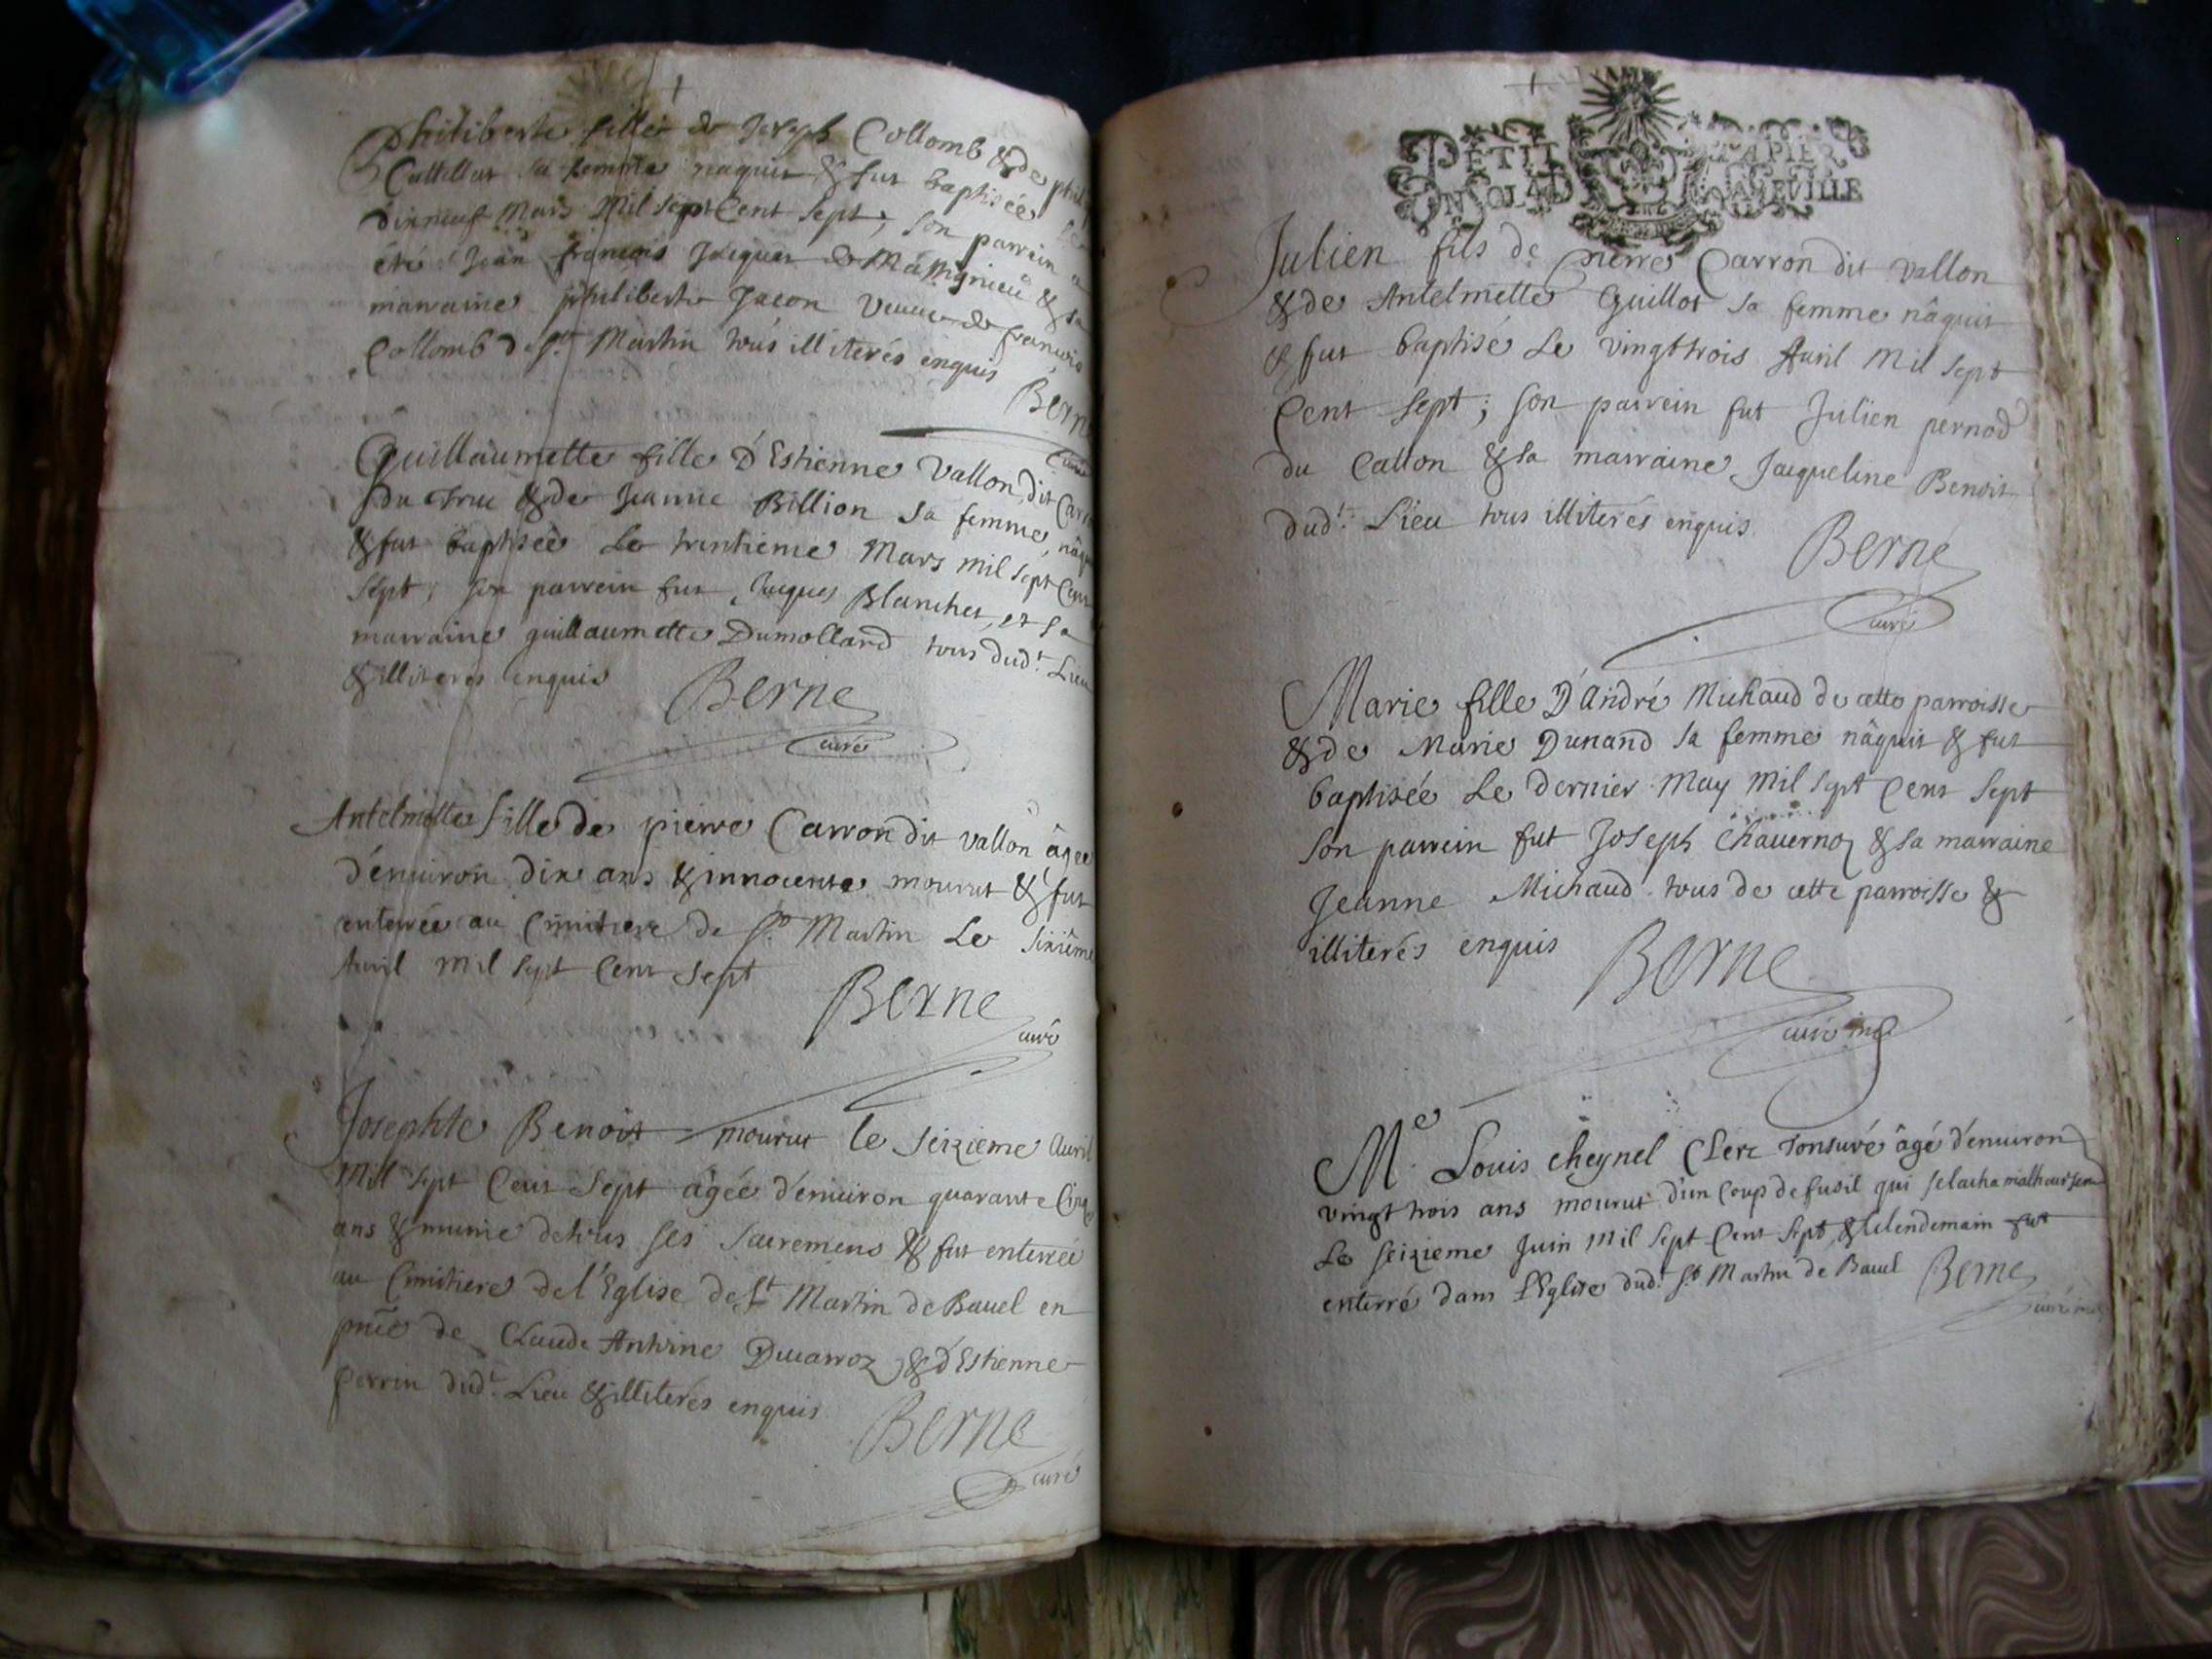 Philiberte fille de Joseph Collomb & de phil
Cattillat sa femme naquit & fut baptisée le
dixneuf Mars Mil sept Cent Sept, son parrein a
été Jean francois Jacques de Massignieu & sa
marraine philiberte Jacon Veuue de francois
Collomb de St Martin tous illiterés enquis
Berne
Curé
Guillaumette fille D'Estienne Vallon, dit Carr
du Truc & de Jeanne Billion sa femme, nâqu
& fut baptisée Le trentième Mars mil sept Cent
Sept, son parrein fut Jacques Blanchet, et sa
marraine guillaumette Dumollard tous dudt. Lieu
& illiterés enquis
Berne
curé
Antelmette fille de pierre Carron dit vallon âgée
d'enuiron dix ans & innocente mourut & fut
enterrée au Cimitiere de St Martin Le sixième
Auril mil sept Cent sept
Berne
curé
Josephte Benoit mourut le seizieme Auril
Mil sept Cent Sept âgée d'enuiron quarante Cinq
ans & munie de tous ses Sacremens & fut enterrée
au Cimitiere de l'Eglise de St Martin de Bauel en
pnce de Claude Anthoine Ducarroz & d'Estienne
Perrin dudt. Lieu & illiterés enquis
Berne
curé
PETIT PAPIER
Julien fils de pierre Carron dit vallon
& de Antelmette Guillot sa femme nâquit
& fut baptisé Le vingt trois Auril Mil sept
Cent sept; son parrein fut Julien pernod
du Catton & sa marraine Jacqueline Benoit
dudt. Lieu tous illiterés enquis
Berne
curé
Marie fille D'André Michaud de cette parroisse
& de Marie Dunand sa femme nâquit & fut
baptisée Le dernier May mil sept Cent Sept
son parrein fut Joseph Chauernoz & sa marraine
Jeanne Michaud tous de cette parroisse &
illiterés enquis
Berne
curé
Me. Louis cheynel Clerc Tonsuré âgé d'enuiron
vingt trois ans mourut d'un coup de fusil qui se lacha malheureusem
Le seizieme Juin mil sept Cent Sept, & le lendemain fut
enterré dans L'Eglise dudt. St Martin de Bauel
Berne